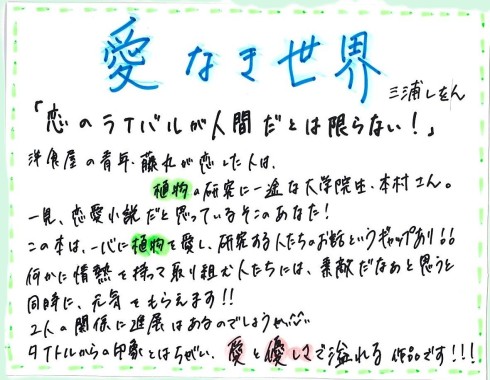 愛なき世界
三浦しをん
「恋のライバルが人間だとは限らない！」
洋食屋の青年・藤丸が恋した人は、
植物の研究に一途な大学院生・本村さん。
一見、恋愛小説だと思っているそこのあなた！
この本は、一心に植物を愛し、研究する人たちのお話というギャップあり!!
何かに情熱を持って取り組む人たちには、素敵だなあと思うと
同時に、元気をもらえます!!
2人の関係に進展はあるのでしょうか
タイトルからの印象とはちがい、愛と優しさで溢れる作品です!!!